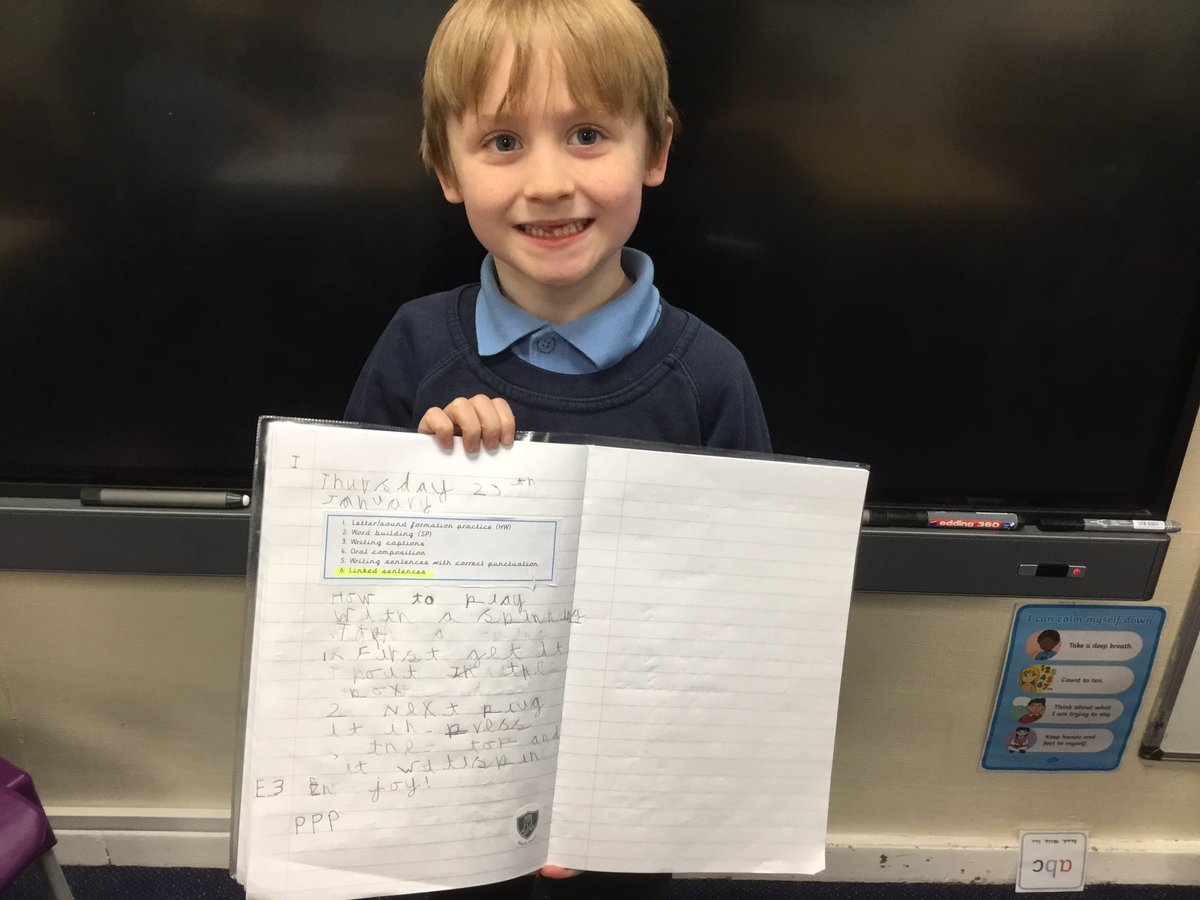 I
Thursday 23th
January
1. Letter/sound formation practice (HW)
2. Word building (SP)
3. Writing captions
4. Oral composition
5. Writing sentences with correct punctuation
6. Linked sentences
How to play
With a spinning
a
First get it
pout the
box
2 Next plug
it in press
the top and
it will spin
E3 En joy!
PPP
edding 360
I can calm myself down
Take a deep breath.
Count to ten.
Think about what
I am trying to say.
Keep hands and
feet to myself.
abc